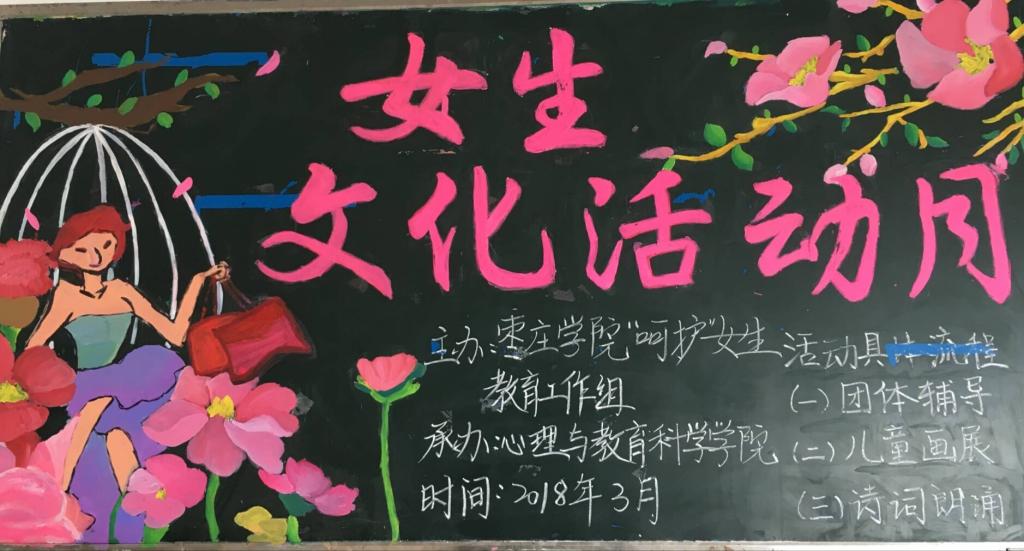 女生
文化活动月
主办:枣庄学院"呵护"女生
教育工作组
承办:心理与教育科学学院
时间:2018年3月
活动具体流程
(一)团体辅导
(二)儿童画展
(三)诗词朗诵